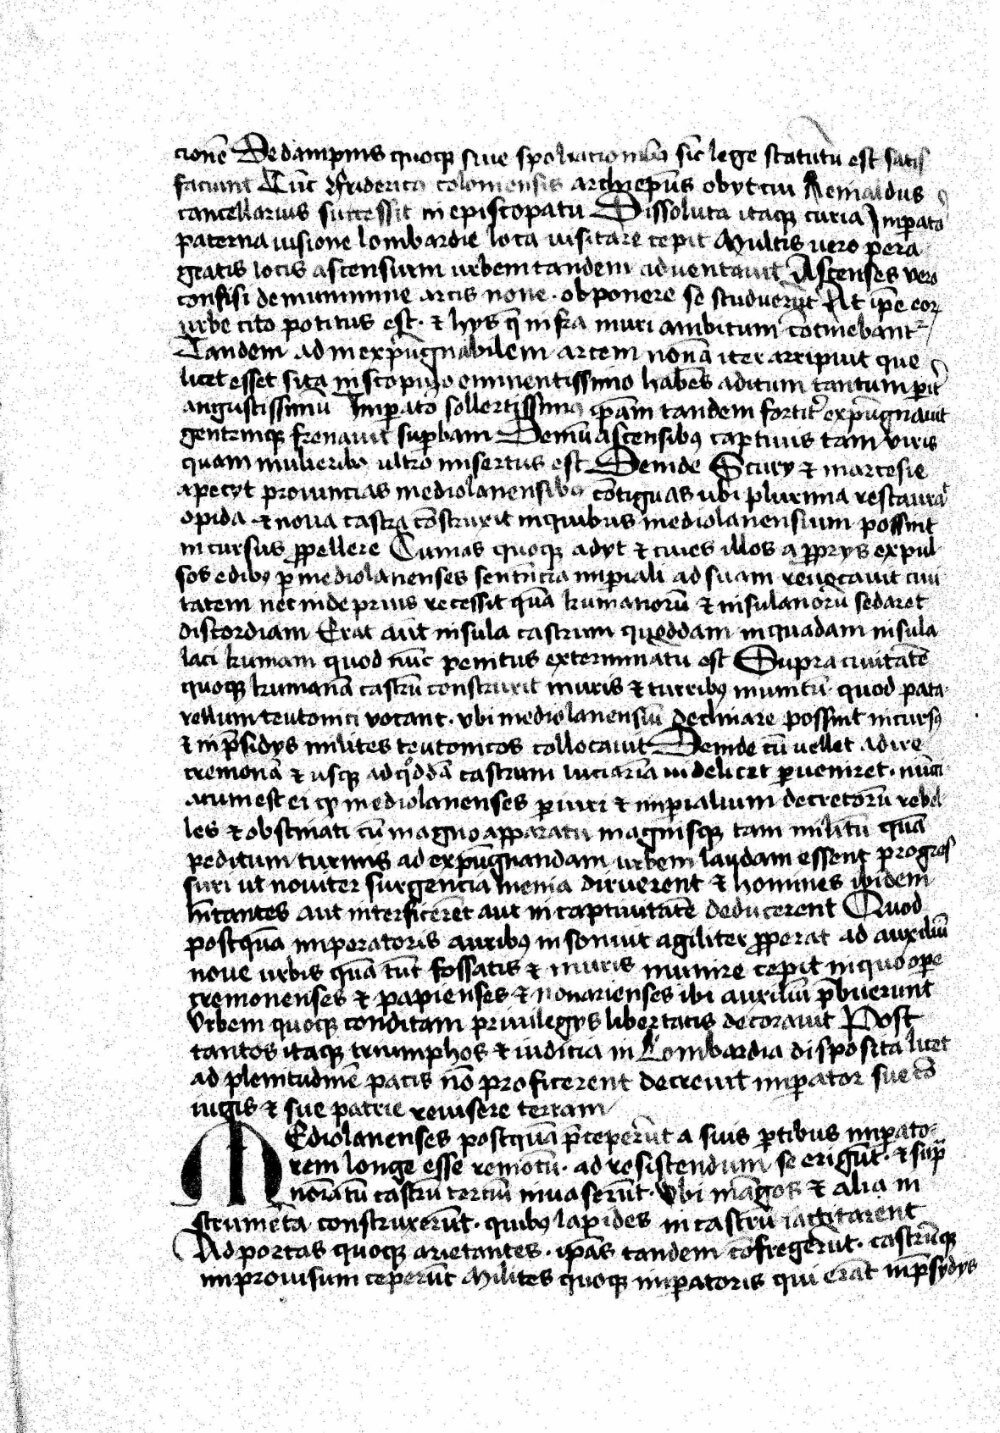 cionē De dampnis quoqꝫ siue spoliacionibꝰ sic lege statutū est satis
faciant Tūc ffridericꝰ coloniensis archiepūs obyt cui Reinaldus
cancellarius successit in episcopatu Dissoluta itaqꝫ curia Impato
paterna uisione lombardie loca uisitare cepit Multis uero pera
gratis locis astensium urbem tandem aduentauit Astenses vero
confisi de munimine arcis none · obponere se studuerūt At ipē eorꝫ
urbe cito potitus est · & hys q̄ infra muri ambitum cōtinebant᷑
Tandem ad inexpūgnabilem artem nonā iter arripuit que
licet esset sita in scopulo eminentissimo habēs aditum tantum p
angustissimū Impato sollertissimꝰ ipām tandem fortit expūgnauit
gentemqꝫ frenauit supbam Demū astensibꝰ captiuis tam viris
quam mulieribꝰ ultro misertus est Deinde Scury & martesie
apecyt prouincias mediolanensibꝰ cōtiguas ubi plurima restaurat
opida & noua castra cōstruxit in quibus mediolanensium possint
incursus ꝓpellere Cumas quoqꝫ adyt & ciues illos a ꝓprys expul
sos edibꝰ p mediolanenses sentēcia impiali ad suam reuocauit ciui
tatem nec inde prius recessit quā kumanorū & insulanorū sedaret
discordiam Erat aūt insula castrum quoddam in quadam insula
laci kumam quod nūc penitus exterminatū est Supra ciuitatē
quoqꝫ kumanā castrū construxit muris & turribꝰ munitū · quod pata
rellum teutonici vocant · vbi mediolanensiū declinare possint incursꝰ
& in p̄sidys milites teutonicos collocauit Deinde cū vellet adire
cremonā & usqꝫ ad qͦddā castrum luciariā uidelicet pueniret · nūci
atum est ei qꝫ mediolanenses piuri & impialium decretorū rebel
les & obstinati cū magno apparatu magnisqꝫ tam militū quā
peditum turmis ad expūgnandam urbem laudam essent progres
suri ut nouiter surgencia menia diruerent & homines ibidem
hītantes aut interficerēt aut in captiuitatē deducerent Quod
postquā imperatoris auribꝰ insonuit agiliter ꝓperat ad auxiliū
noue urbis quā tūt fossatis & muris munire cepit in quo ope
cremonenses & papienses & nouarienses ibi auxiliū p̄buerunt
Vrbem quoqꝫ conditam priuilegys libertatis decorauit Post
tantos itaqꝫ triumphos & iudicia in Lombardia disposita licet
ad plenitudinē pacis nō proficerent decreuit impator sue cō
iugis & sue patrie reuisere terram
Mediolanenses postquā p̄ceperūt a suis ptibus impato
rem longe esse remotū · ad resistendum se erigūt · & sup
noīatū castrū tertiū inuaserūt · Vbi māgos & alia in
strumēta construxerūt · quibꝰ lapides in castrū iactitarent
Ad portas quoqꝫ arietantes · ipas tandem cōfregerūt · castrūqꝫ
improuisum ceperūt Milites quoqꝫ impatoris qui erāt in p̄sydys